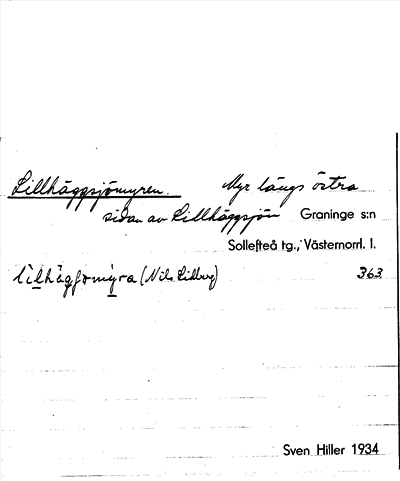 Lillhäggsjömyren. Myr längs östra
sidan av Lillhäggsjön Graninge s:n
Sollefteå tg., Västernorrl. l.
(Nils Lidberg) 363
Sven Hiller 1934